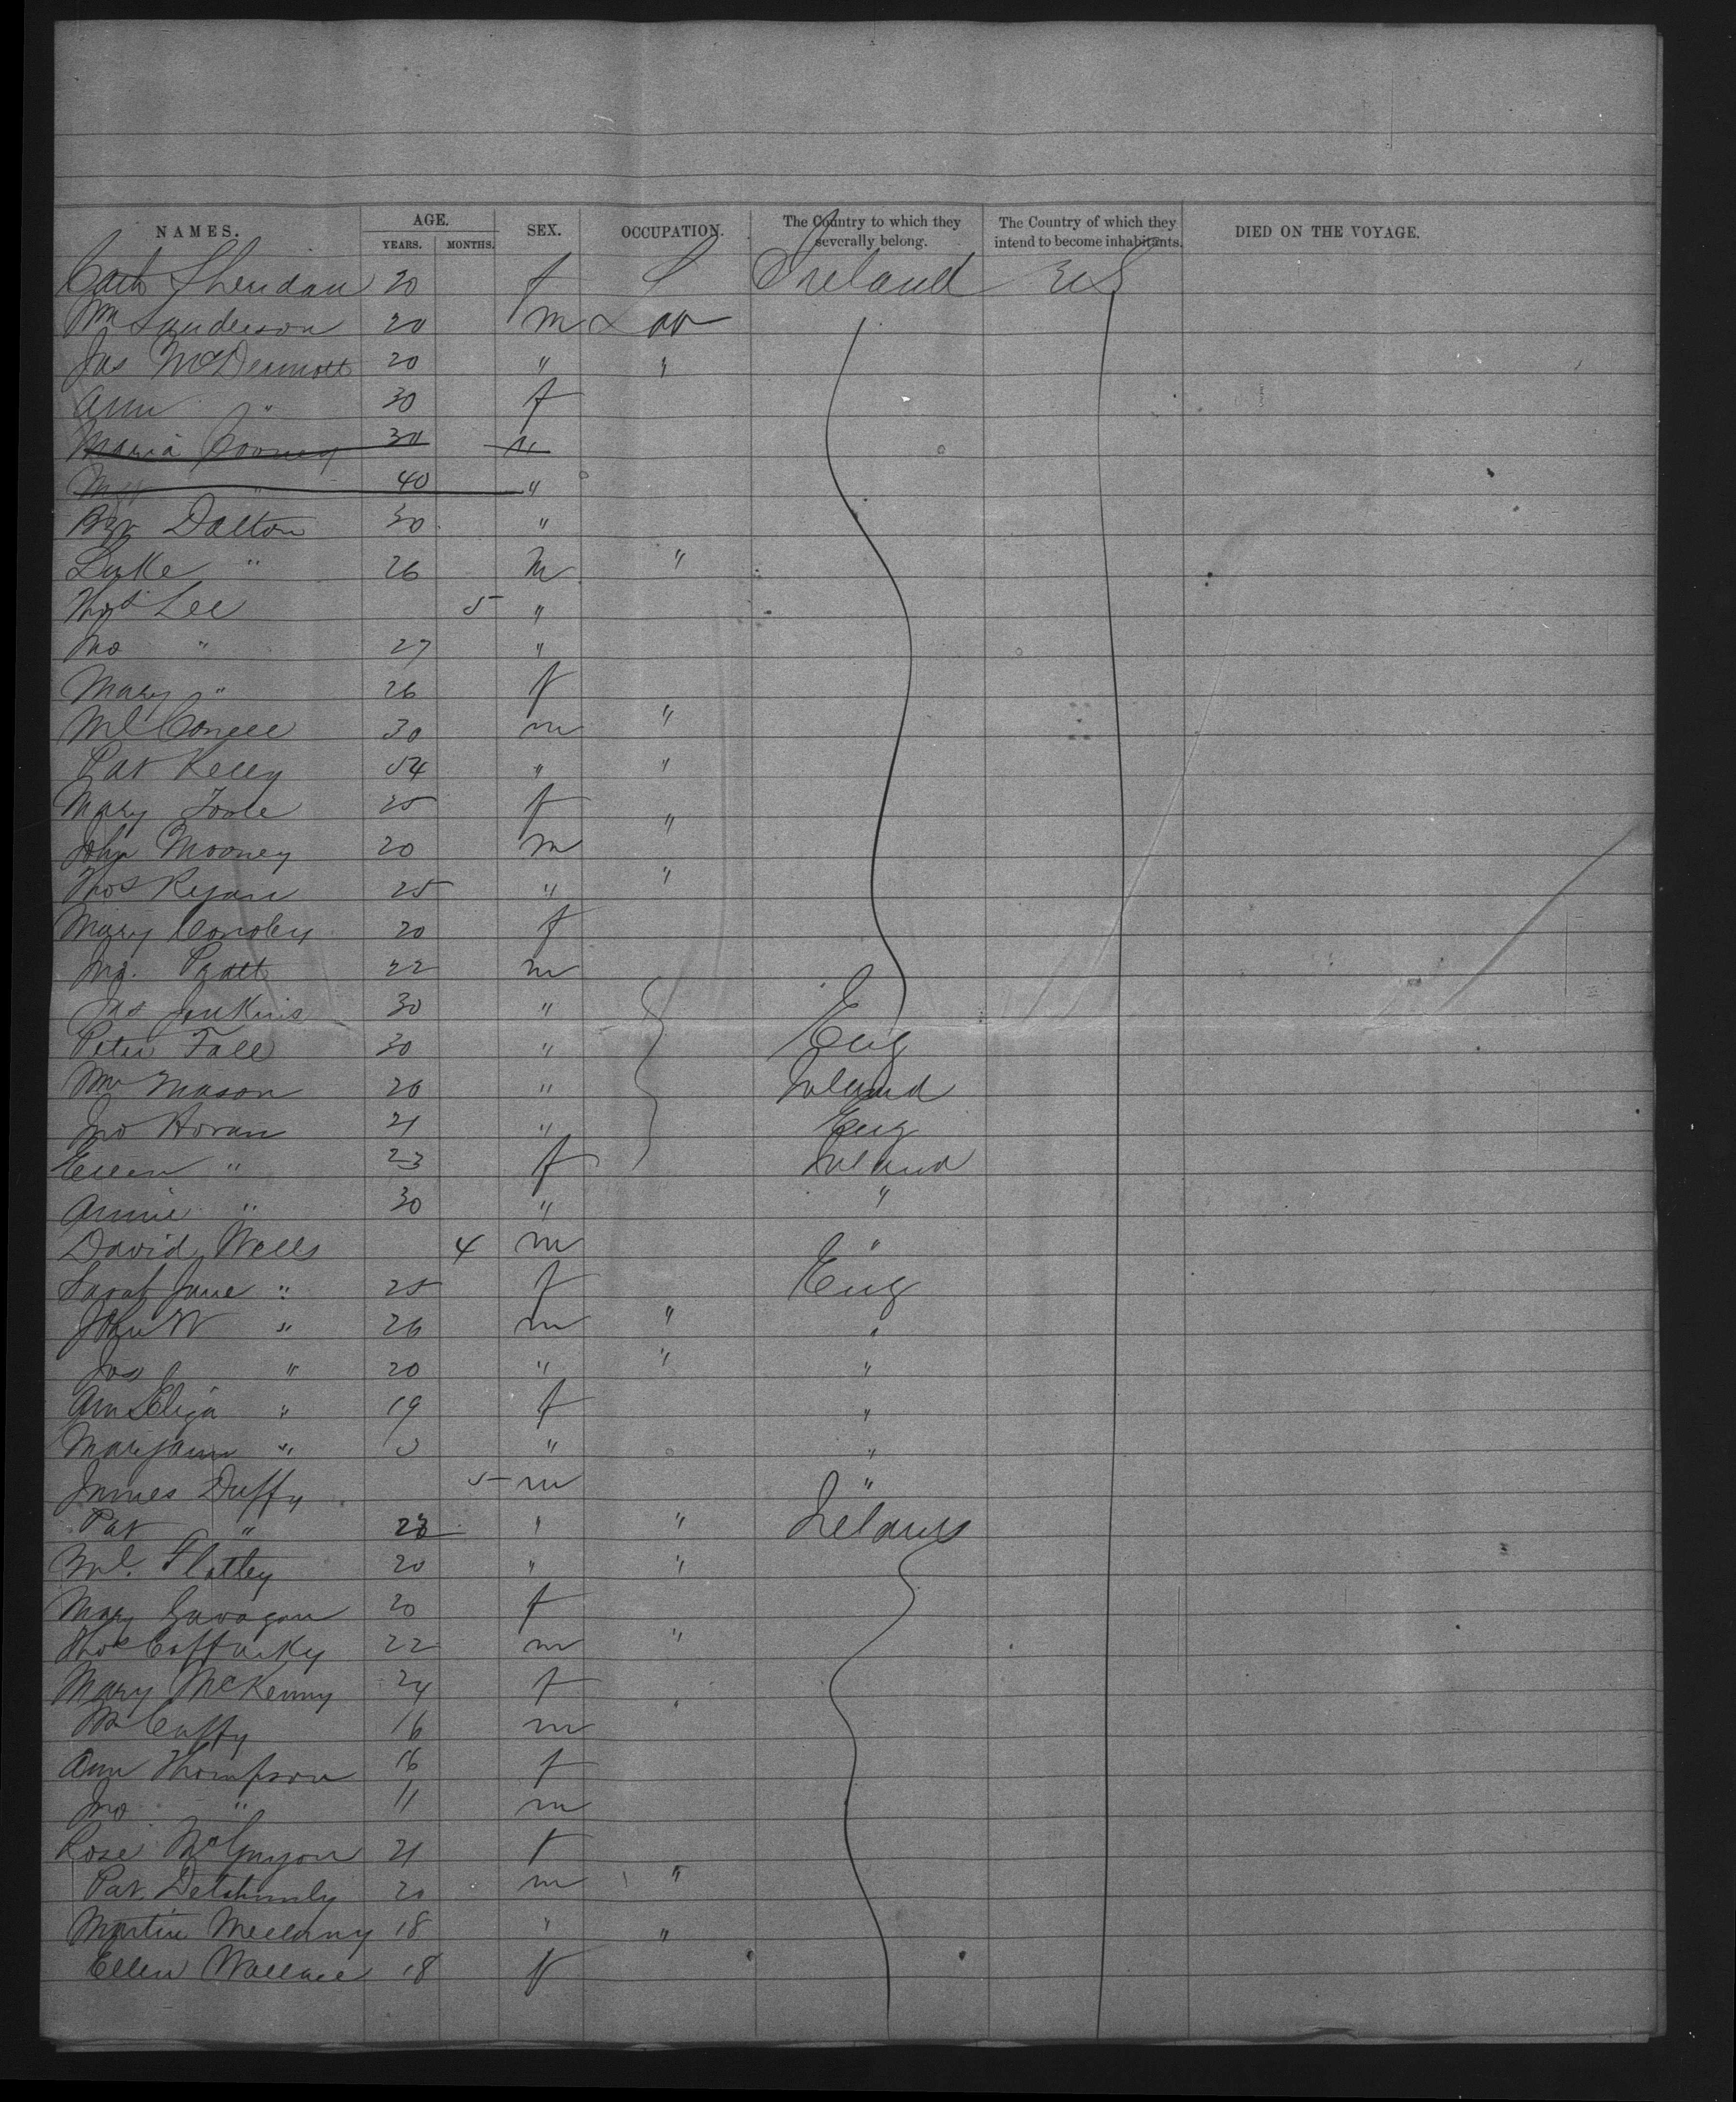 NAMES. AGE. SEX. OCCUPATION. The Country to which they severally belong. The Country of which they intend to become inhabitants. DIED ON THE VOYAGE.
YEARS. MONTHS.
Cath Sheridan 20 f S Ireland US
Wm Sanderson 20 m Lab
Jas McDermott 20 " "
Ann " 30 f
Maria Cooney 30 "
" 40 "
Dalton 30 "
Luke " 26 m "
Thos Lee 5 "
Jno " 27 "
Mary " 26 f
Ml 30 m "
Pat Kelly 54 " "
Mary Toole 25 f
John Mooney 20 m "
Thos Ryan 25 " "
Mary 20 f
Pratt 22 m
Jas Jenkins 30 " E
Peter Fall 30 " Eng
Wm Mason 20 " Ireland
Jno Horan 21 " Eng
Ellen " 23 f Ireland
Annie " 30 " "
David Wells 4 m "
Sarah Jane " 25 f Eng
John W " 26 m " "
Jas " 20 " " "
Ann Eliza " 19 f "
Maryann " 3 " "
James Duffy 5 m "
Pat " 23 " " Ireland
Ml. Flatley 20 " "
Mary Gavagan 20 f
Thos Caffarky 22 m "
Mary McKenny 24 f
Caffy 16 m
Ann Thompson 16 f
Jno " 11 m
Rose 21 f
Pat. 20 m "
Martin 18 " "
Ellen Wallace 18 f